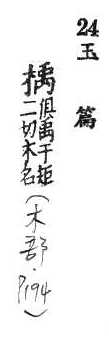 24
玉篇
楀俱禹于矩
二切木名
(木部·P194)